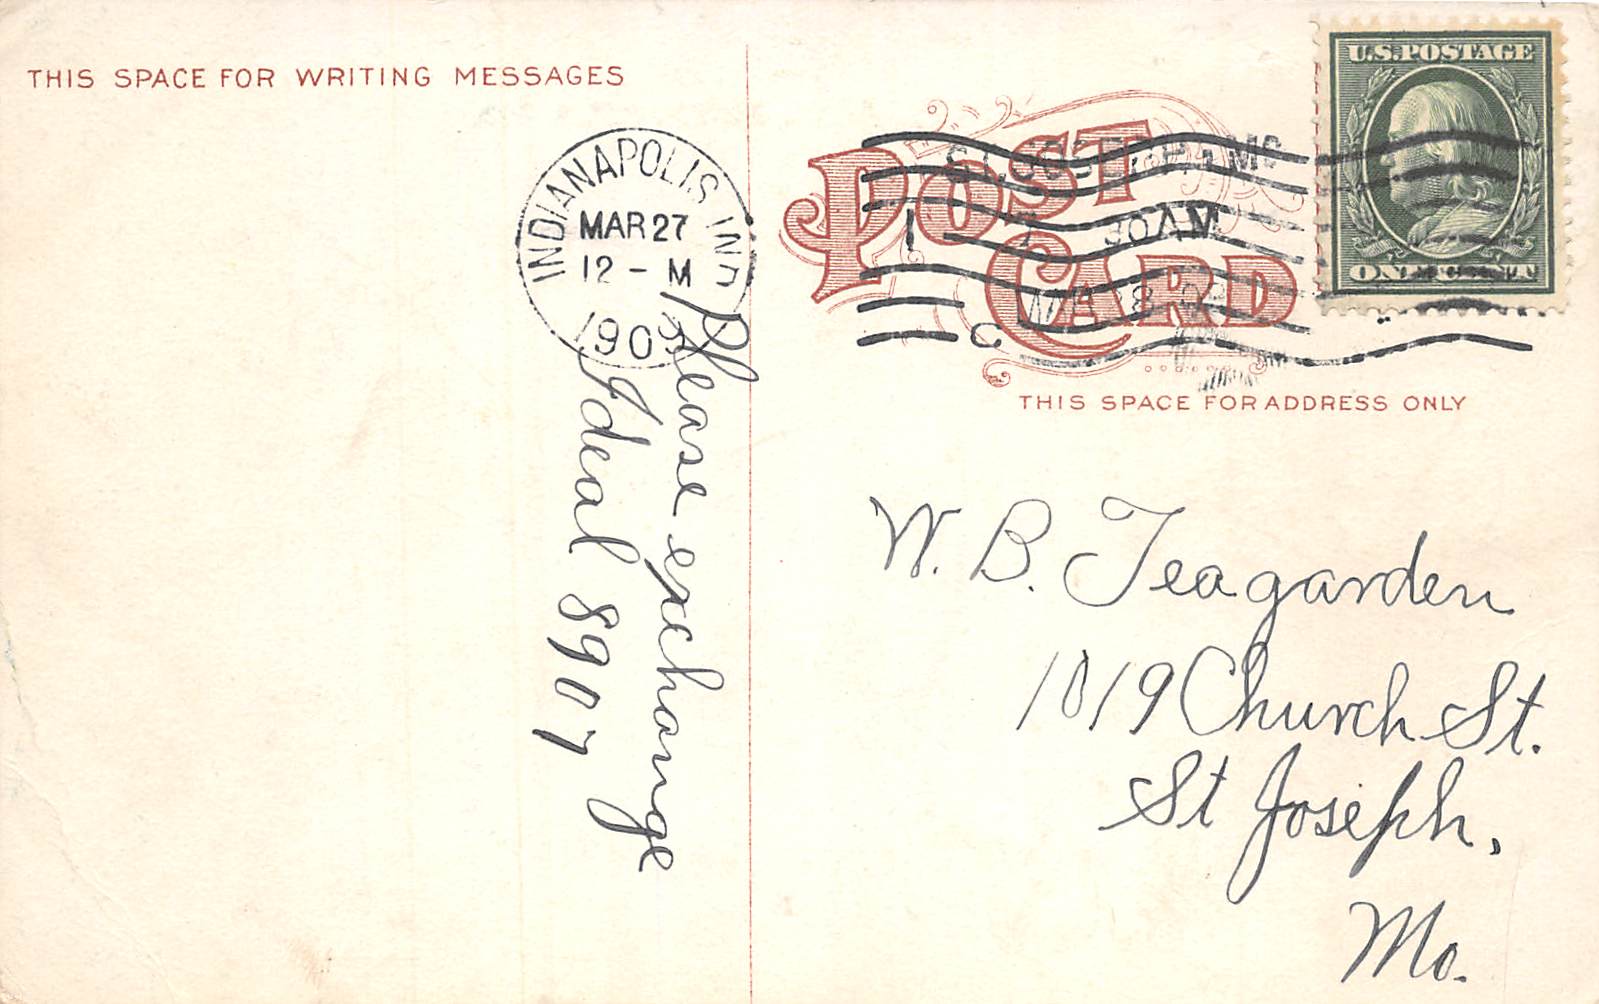 THIS SPACE FOR WRITING MESSAGES
U.S. POSTAGE
INDIANAPOLIS IND
MAR 27
12 - M
190
POST
CARD
30 AM
THIS SPACE FOR ADDRESS ONLY
Please exchange
Ideal 8907
W. B. Teagarden
1019 Church St.
St Joseph,
Mo.